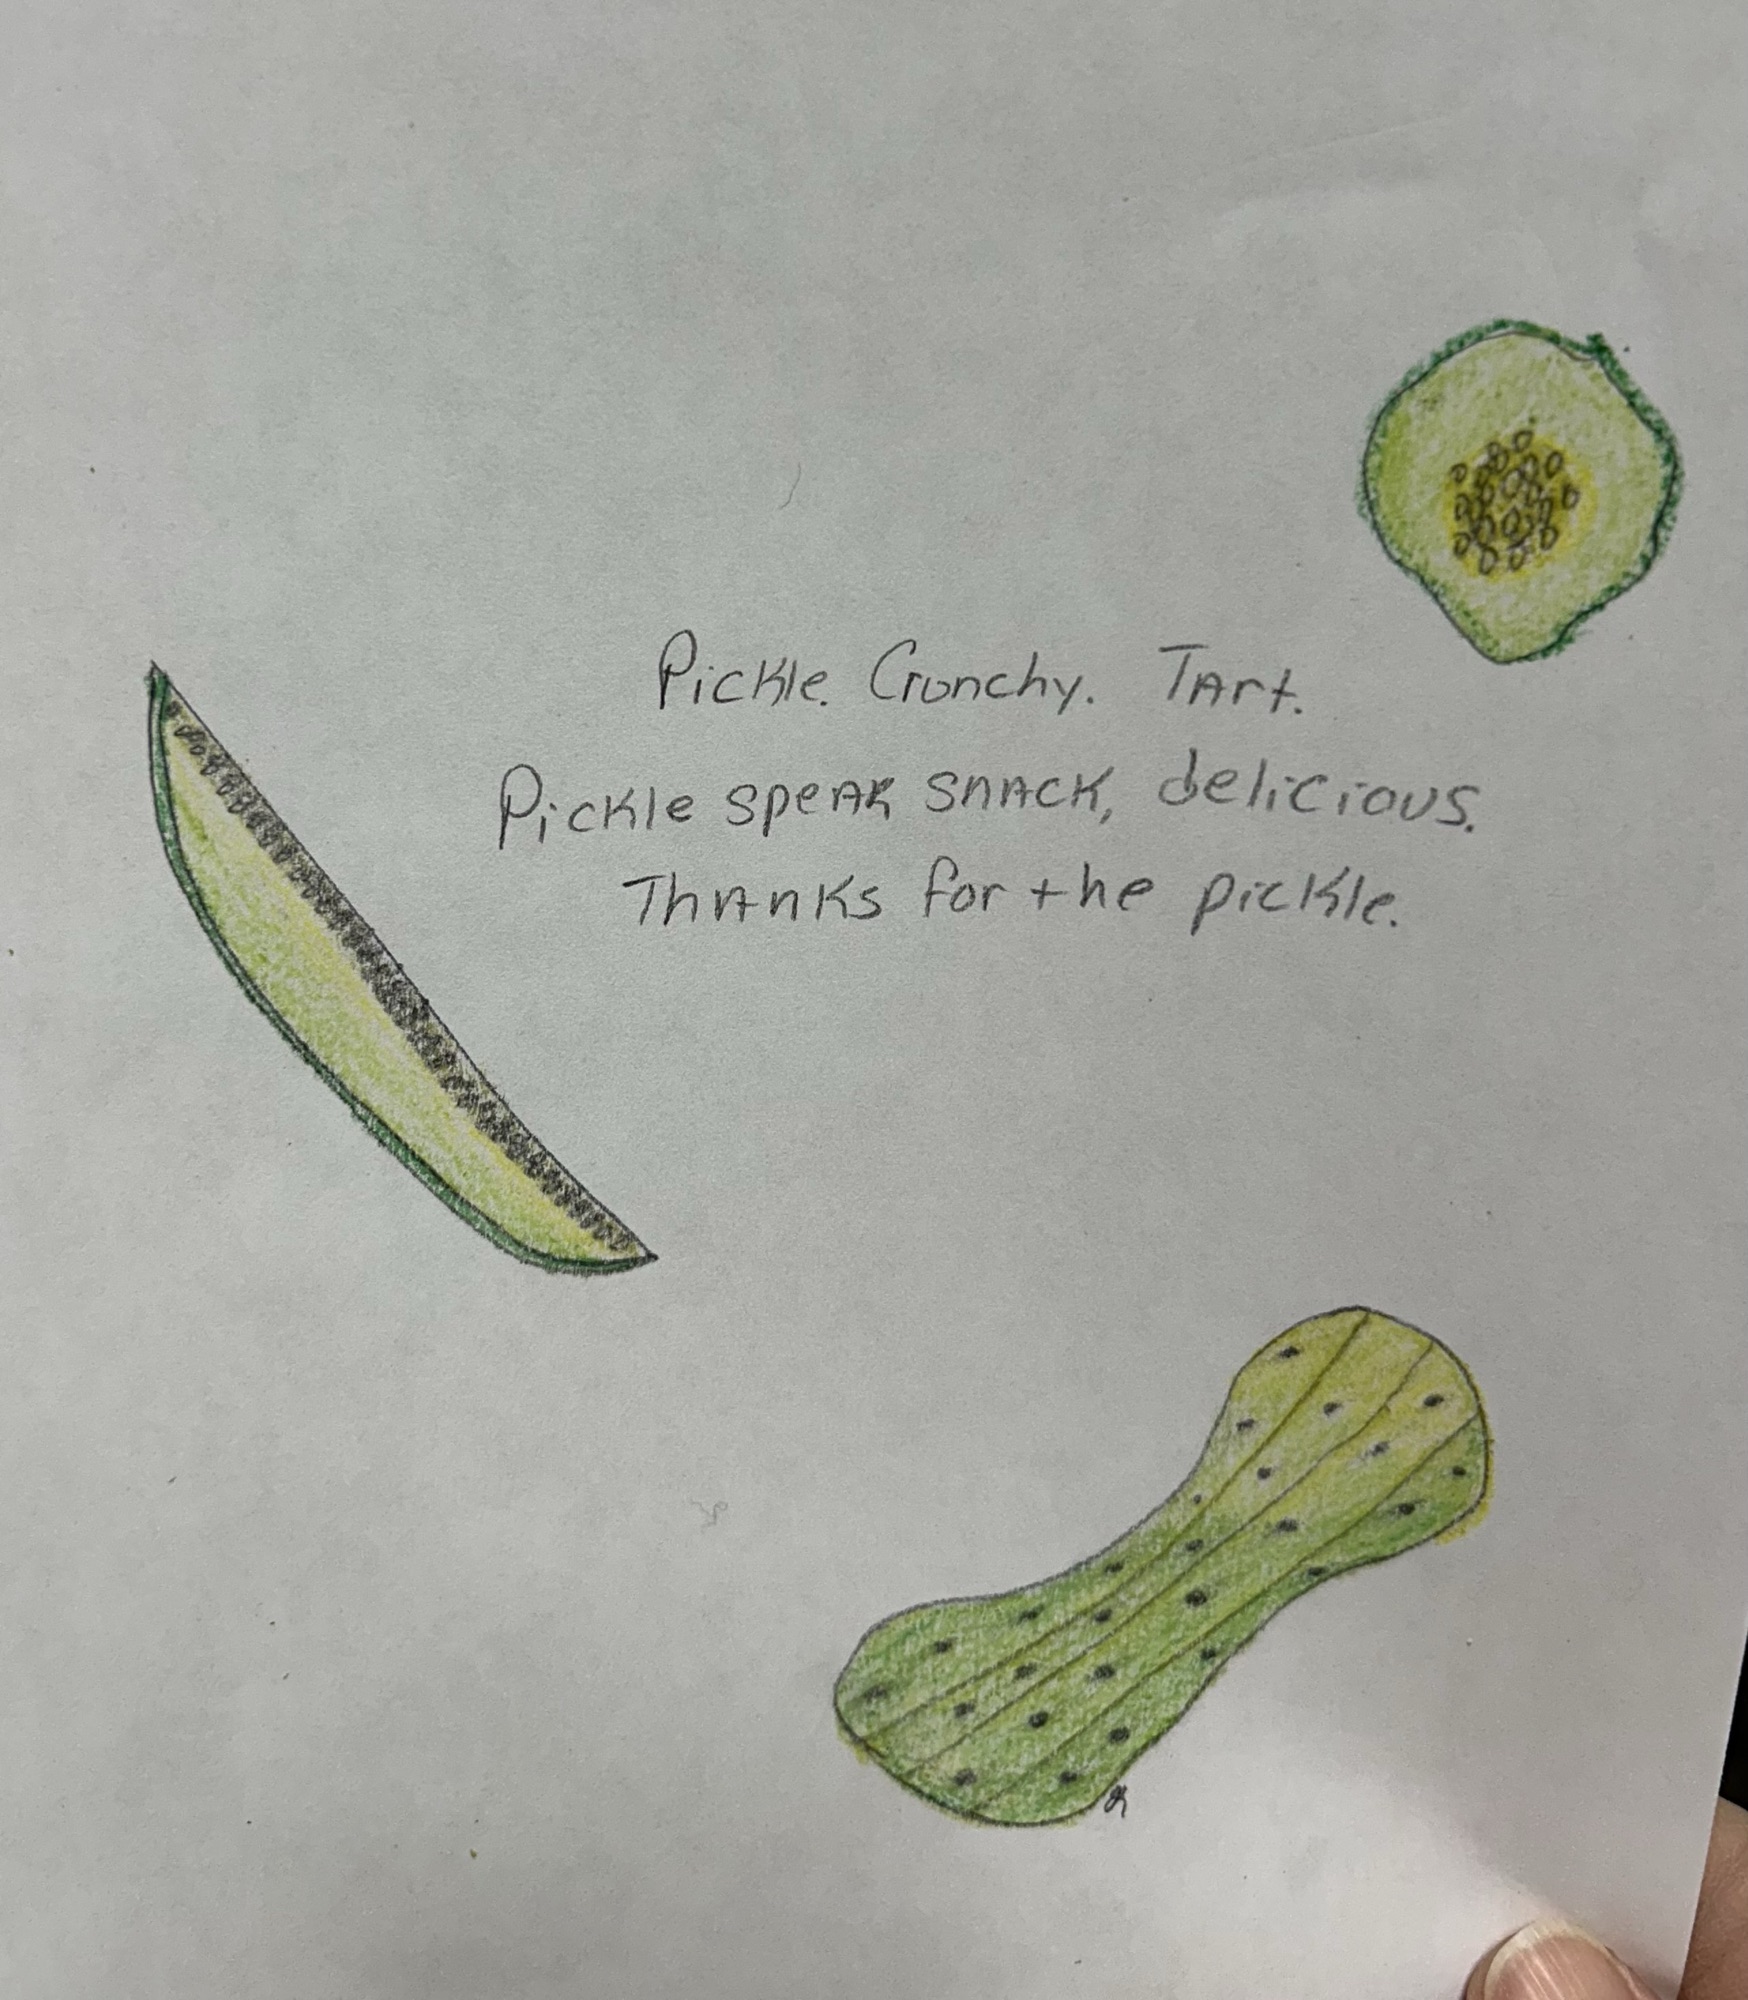 Pickle. Crunchy. Tart.
Pickle spear snack, delicious.
Thanks for the pickle.